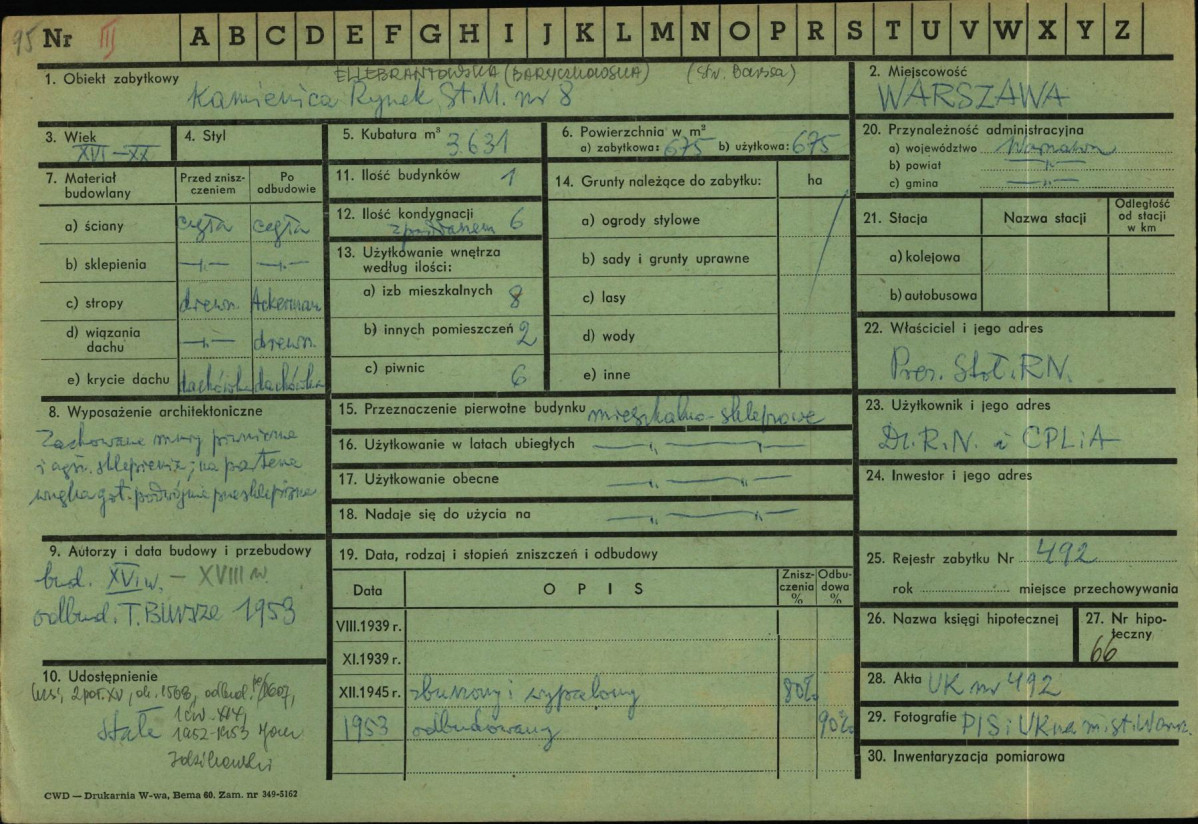 95 Nr III A B C D E F G H I J K L M N O P R S T U V W X Y Z
1. Obiekt zabytkowy ELLEBRANTOWSKA (BARYCZKOWSKA) (Str. Barssa)
Kamienica Rynek St. M. nr 8
2. Miejscowość
WARSZAWA
3. Wiek
XVI–XX
4. Styl
5. Kubatura m³ 3.631
6. Powierzchnia w m²
a) zabytkowa: 675 b) użytkowa: 675
20. Przynależność administracyjna
a) województwo Warszawa
b) powiat —„—
c) gmina —„—
7. Materiał budowlany
Przed znisz-
czeniem
Po
odbudowie
a) ściany cegła cegła
b) sklepienia —„— —„—
c) stropy drewn. Ackerman
d) wiązania
dachu —„— drewn.
e) krycie dachu dachówka dachówka
11. Ilość budynków 1
12. Ilość kondygnacji 6
13. Użytkowanie wnętrza
według ilości:
a) izb mieszkalnych 8
b) innych pomieszczeń 2
c) piwnic 6
14. Grunty należące do zabytku: ha
a) ogrody stylowe
b) sady i grunty uprawne
c) lasy
d) wody
e) inne
21. Stacja Nazwa stacji
Odległość
od stacji
w km
a) kolejowa
b) autobusowa
22. Właściciel i jego adres
Prez. Stoł. R.N.
8. Wyposażenie architektoniczne
Zachowane mury piwniczne
i sklepienie; na parterze
wnęka got. podwójnie przesklepiona
15. Przeznaczenie pierwotne budynku mieszkalno-sklepowe
16. Użytkowanie w latach ubiegłych —„— —„—
17. Użytkowanie obecne —„— —„—
18. Nadaje się do użycia na —„— —„—
23. Użytkownik i jego adres
Dz. R. N. i CPLiA
24. Inwestor i jego adres
9. Autorzy i data budowy i przebudowy
bud. XVI w. – XVIII w.
odbud. T. BURSZE 1953
19. Data, rodzaj i stopień zniszczeń i odbudowy
Data OPIS
Znisz-
czenia
%
Odbu-
dowa
%
VIII.1939 r.
XI.1939 r.
XII.1945 r. zburzony i wypalony 80%
1953 odbudowany 90%
25. Rejestr zabytku Nr 492
rok miejsce przechowywania
26. Nazwa księgi hipotecznej
27. Nr hipo-
teczny
66
10. Udostępnienie
2 poł. XV, ok. 1568, odbud. po 1607,
1 ćw. XIX,
Stałe 1952-1953
28. Akta UK nr 492
29. Fotografie PIS i UK na m. st. Warsz.
30. Inwentaryzacja pomiarowa
CWD — Drukarnia W-wa, Bema 60. Zam. nr 349-5162